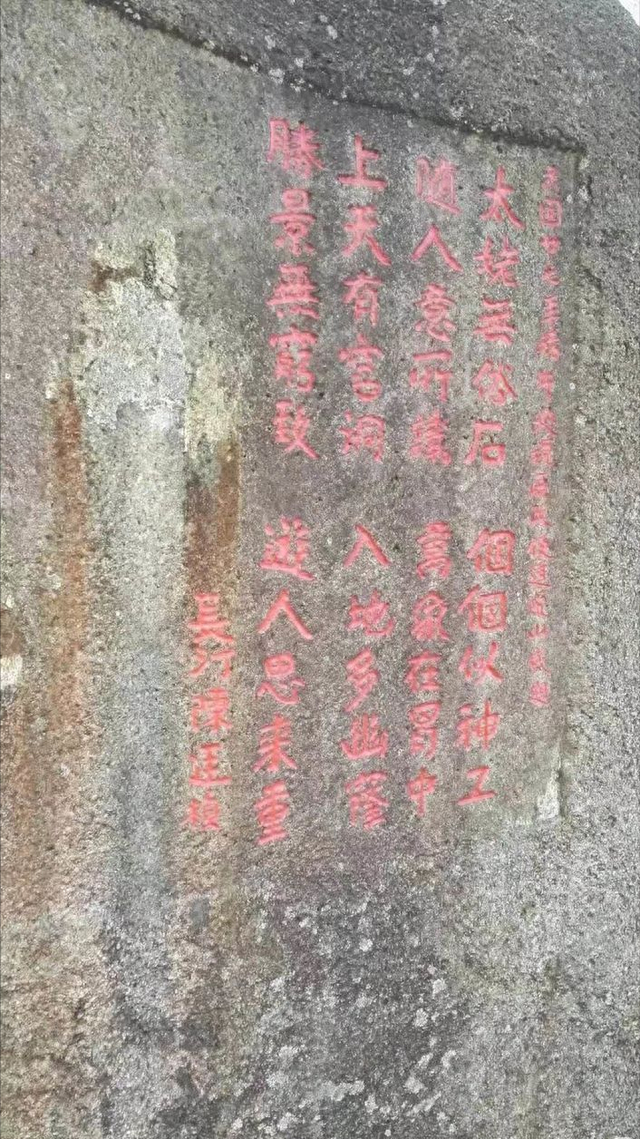 民國廿七年春
太姥無俗石 個個似神工
隨人意所 萬象在胷中
上天有宮洞 入地多幽窿
勝景無窮致 遊人思來重
吳汀陳廷